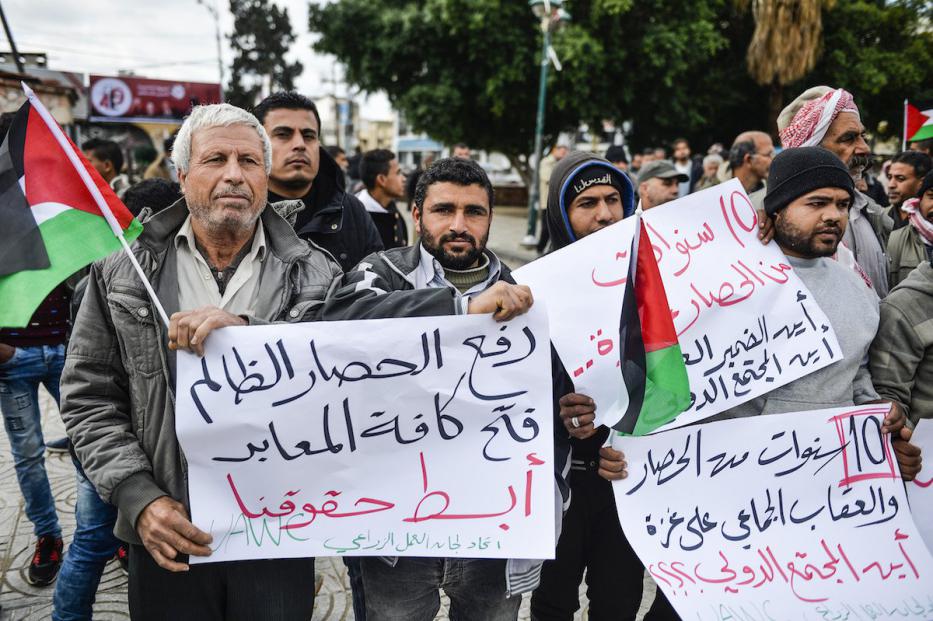 رفع الحصار الظالم
فتح كافة المعابر
أبسط حقوقنا
UAWC اتحاد لجان العمل الزراعي
10 سنوات
من الحصار
أين الضمير
أين المجتمع الدولي
10 سنوات من الحصار
والعقاب الجماعي على غزة
أين المجتمع الدولي ؟؟؟؟
UAWC
القدس